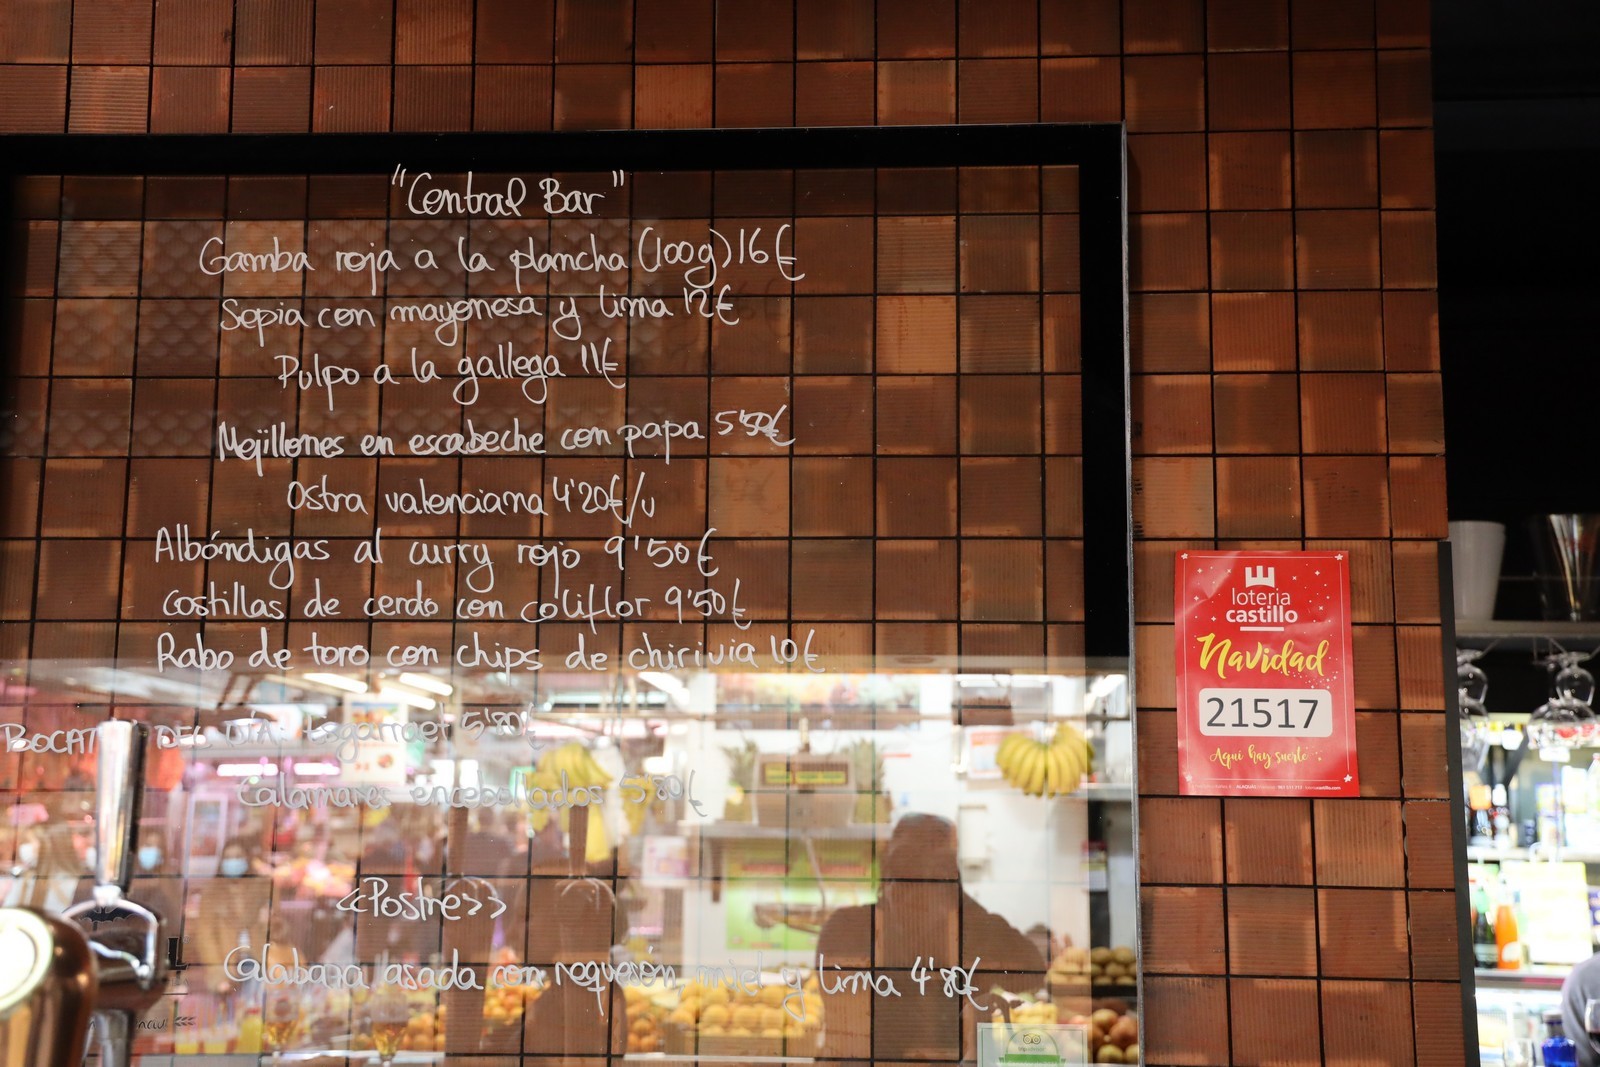 "Central Bar"
Gamba roja a la plancha (100g) 16€
Sepia con mayonesa y lima 12€
Pulpo a la gallega 11€
Mejillones en escabeche con papa 5'50€
Ostra valenciana 4'20€/u
Albóndigas al curry rojo 9'50€
Costillas de cerdo con coliflor 9'50€
Rabo de toro con chips de chirivia 10€
BOCAT DEL DIA: Esgarraet 5'80€
Calamares encebollados 5'80€
<<Postre>>
Calabaza asada con requesón, miel y lima 4'80€
loteria
castillo
Navidad
21517
Aquí hay suerte